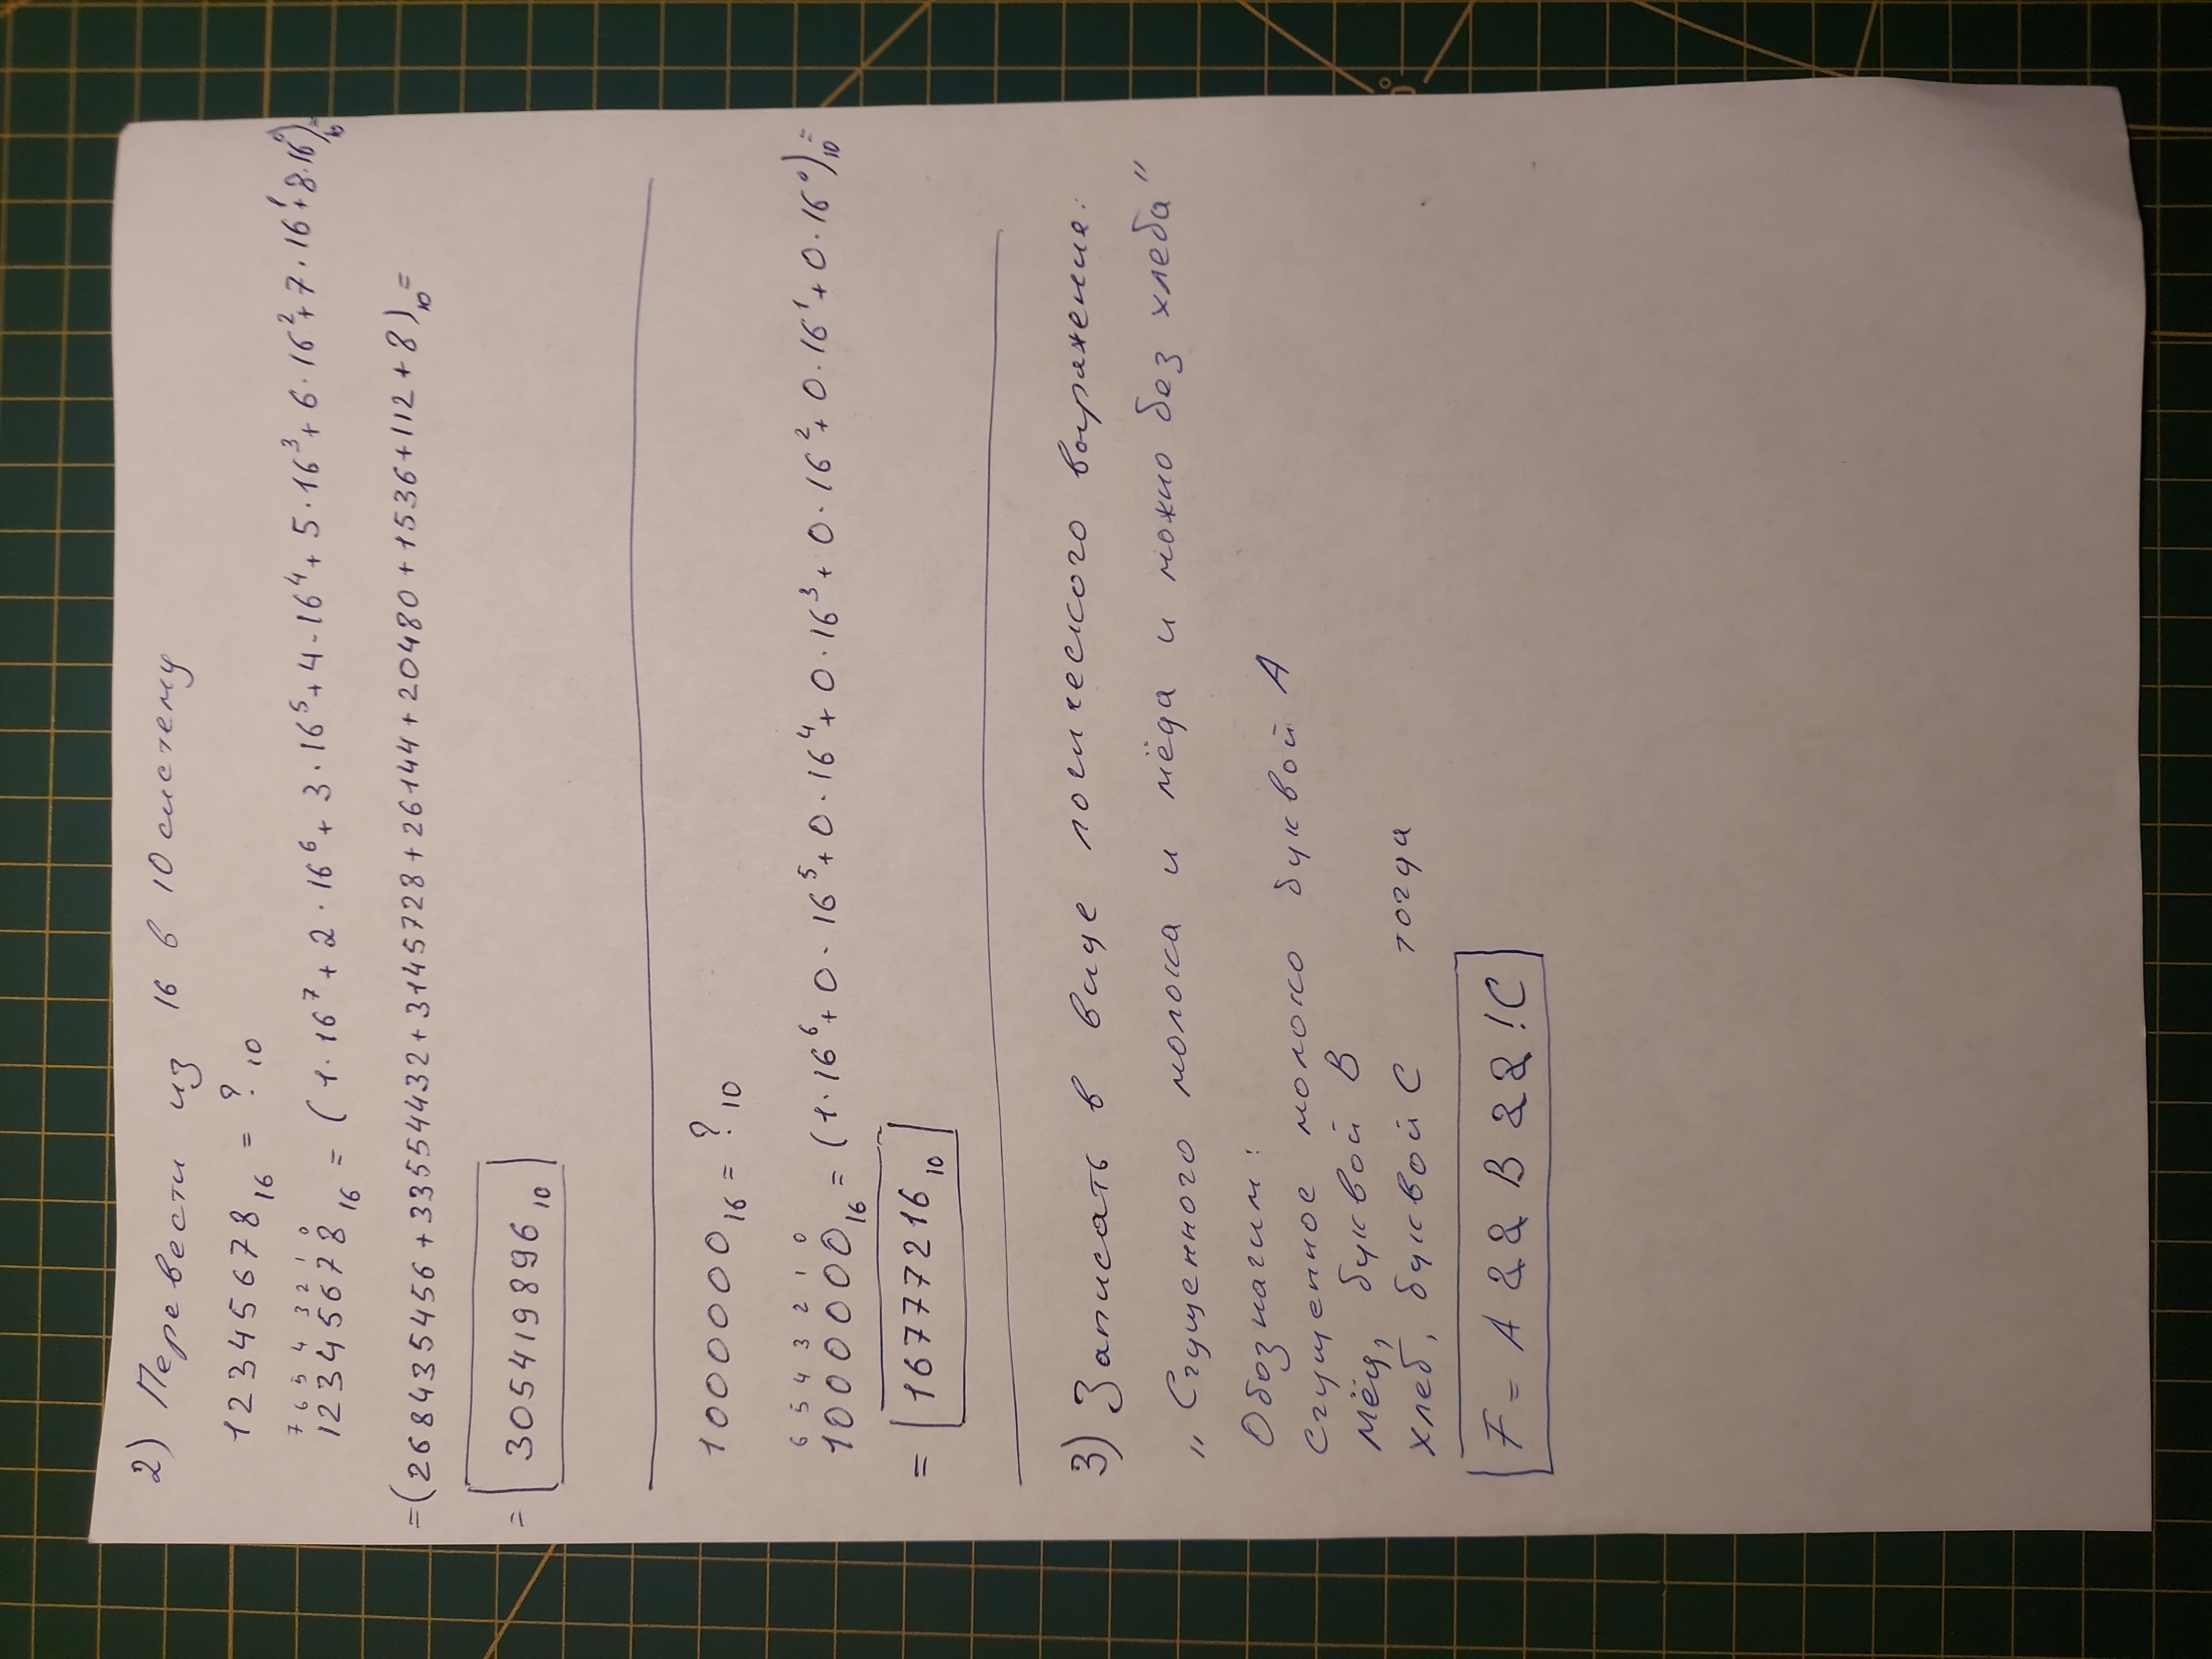 2) Перевести из 16 в 10 систему
12345678₁₆ = ?₁₀
7 6 5 4 3 2 1 0
12345678₁₆ = (1·16⁷ + 2·16⁶ + 3·16⁵ + 4·16⁴ + 5·16³ + 6·16² + 7·16¹ + 8·16⁰)₁₀ =
= (268435456 + 33554432 + 3145728 + 26144 + 20480 + 1536 + 112 + 8)₁₀ =
= 305419896₁₀
1000000₁₆ = ?₁₀
6 5 4 3 2 1 0
1000000₁₆ = (1·16⁶ + 0·16⁵ + 0·16⁴ + 0·16³ + 0·16² + 0·16¹ + 0·16⁰)₁₀ =
= 16777216₁₀
3) Записать в виде логического выражения:
„Сгущенного молока и мёда и можно без хлеба"
Обозначим:
Сгущенное молоко буквой А
Мёд, буквой В
хлеб, буквой С тогда
F = A && B && !C